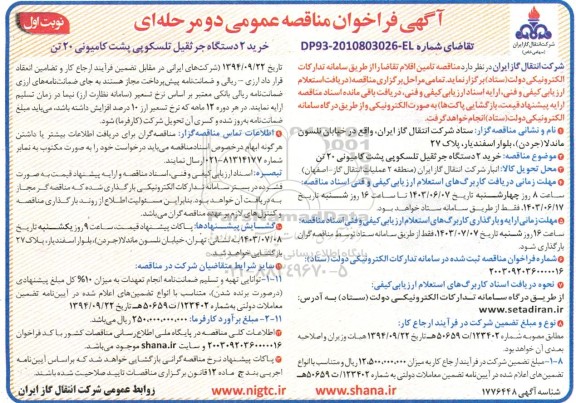 آگهی فراخوان مناقصه عمومی دو مرحله‌ای
نوبت اول
شرکت انتقال گاز ایران
تقاضای شماره DP93-2010803026-EL
خرید ۲ دستگاه جرثقیل تلسکوپی پشت کامیونی ۲۰ تن
شرکت انتقال گاز ایران در نظر دارد مناقصه تامین اقلام تقاضا را از طریق سامانه تدارکات
الکترونیکی دولت (ستاد) برگزار نماید. تمامی مراحل برگزاری مناقصه (دریافت استعلام
ارزیابی کیفی و فنی، ارایه اسناد ارزیابی کیفی و فنی، دریافت باقی مانده اسناد مناقصه
ارایه پیشنهاد قیمت، بازگشایی پاکت‌ها) به صورت الکترونیکی و از طریق درگاه سامانه
الکترونیکی دولت (ستاد) انجام خواهد گرفت.
۱ نام و نشانی مناقصه گزار: ستاد شرکت انتقال گاز ایران، واقع در خیابان نلسون
ماندلا (جردن)، بلوار اسفندیار، پلاک ۲۷
۲ موضوع مناقصه: خرید ۲ دستگاه جرثقیل تلسکوپی پشت کامیونی ۲۰ تن
۳ محل تحویل کالا: انبار شرکت انتقال گاز ایران (منطقه ۲ عملیات انتقال گاز - اصفهان)
۴ مهلت زمانی دریافت کاربرگ‌های استعلام ارزیابی کیفی و فنی اسناد مناقصه:
ساعت ۸ روز چهارشنبه تاریخ ۱۴۰۳/۰۶/۰۷ تا ساعت ۱۶ روز شنبه تاریخ
۱۴۰۳/۰۶/۱۷ فقط از طریق سامانه ستاد خواهد بود.
۵ مهلت زمانی ارایه و بارگذاری کاربرگ‌های استعلام ارزیابی کیفی و فنی اسناد مناقصه:
ساعت ۱۶ روز شنبه تاریخ ۱۴۰۳/۰۷/۰۷ فقط از طریق سامانه ستاد توسط مناقصه گران
بارگذاری شود.
۶ شماره فراخوان مناقصه ثبت شده در سامانه تدارکات الکترونیکی دولت (ستاد):
۲۰۰۳۰۹۲۰۳۶۰۰۰۰۱۶
۷ نحوه دریافت اسناد کاربرگ‌های استعلام ارزیابی کیفی:
از طریق درگاه سامانه تدارکات الکترونیکی دولت (ستاد) به آدرس:
www.setadiran.ir
۸ نوع و مبلغ تضمین شرکت در فرآیند ارجاع کار:
مطابق مصوبه به شماره ۱۲۳۴۰۲/ت۵۰۶۵۹هـ تاریخ ۱۳۹۴/۰۹/۲۲ هیات وزیران و اصلاحیه
بعدی آن خواهد بود.
۸-۱- مبلغ تضمین شرکت در فرآیند ارجاع کار به میزان ۱۲,۵۰۰,۰۰۰,۰۰۰ ریال و متناسب با انواع
تضمین‌های اعلام شده در آیین‌نامه تضمین معاملات دولتی به شماره ۱۲۳۴۰۲/ت ۵۰۶۵۹هـ
تاریخ ۱۳۹۴/۰۹/۲۲ (شرکت‌های ایرانی در مقابل تضمین فرآیند ارجاع کار و تضامین انعقاد
قرار داد ارزی – ریالی و ضمانت‌نامه پیش‌پرداخت مجاز هستند به جای ضمانت‌نامه‌های ارزی
ضمانت‌نامه ریالی بانکی معتبر بر اساس نرخ تسعیر (سامانه نظارت ارز) نیما در زمان تسلیم
ارایه نمایند. در هر دوره ۱۲ ماهه که نرخ تسعیر ارز ۱۰ درصد افزایش داشته باشد، می‌باید مبلغ
ضمانت‌نامه به‌روز شده و کسری آن تحویل شرکت (کارفرما) شود.
۹ اطلاعات تماس مناقصه‌گزار: مناقصه‌گران برای دریافت اطلاعات بیشتر یا داشتن
هرگونه ابهام درخصوص اسناد مناقصه می‌باید درخواست خود را به صورت مکتوب به نمابر
شماره ۸۱۳۱۴۱۷۷-۰۲۱ ارسال نمایند.
تبصره: اسناد ارزیابی کیفی و فنی، اسناد مناقصه و ارایه پیشنهاد قیمت به صورت
فشرده در بستر سامانه تدارکات الکترونیکی بارگذاری شده که مناقصه گر مجاز
به دریافت آن خواهد بود. بنابراین مسئولیت اطلاع از روند بارگذاری مناقصه
و کنترل‌های لازم به عهده مناقصه گران می‌باشد.
۱۰ گشایش پیشنهادها: پاکات پیشنهاد قیمت، ساعت ۹ روز یکشنبه تاریخ
۱۴۰۳/۰۷/۰۸ به نشانی تهران، خیابان نلسون ماندلا (جردن)، بلوار اسفندیار، پلاک ۲۷
بازگشایی خواهد شد.
۱۱ سایر شرایط متقاضیان شرکت در مناقصه:
۱-۱۱- توانایی تهیه و تسلیم ضمانت‌نامه انجام تعهدات به میزان ۱۰% کل مبلغ پیشنهادی
(درصورت برنده شدن)، متناسب با انواع تضمین‌های اعلام شده در آیین‌نامه تضمین
معاملات دولتی به‌شماره ۱۲۳۴۰۲/ت ۵۰۶۵۹هـ تاریخ ۱۳۹۴/۰۹/۲۲
۲-۱۱- مبلغ برآورد کارفرما: ۲۵۰,۰۰۰,۰۰۰,۰۰۰ ریال می‌باشد.
۱۲ اطلاعات کلی مناقصه در پایگاه ملی اطلاع‌رسانی مناقصات کشور با کد فراخوان
۲۰۰۳۰۹۲۰۳۶۰۰۰۰۱۶ و سایت shana.ir موجود می‌باشد.
۱۳ پاکات پیشنهاد نرخ مناقصه‌گرانی بازگشایی خواهد شد که بر اساس آیین‌نامه
اجرایی بند ج ماده ۱۲ قانون برگزاری مناقصات تایید صلاحیت شده باشند.
شناسه آگهی ۱۷۷۶۴۴۸
www.shana.ir
www.nigtc.ir
روابط عمومی شرکت انتقال گاز ایران